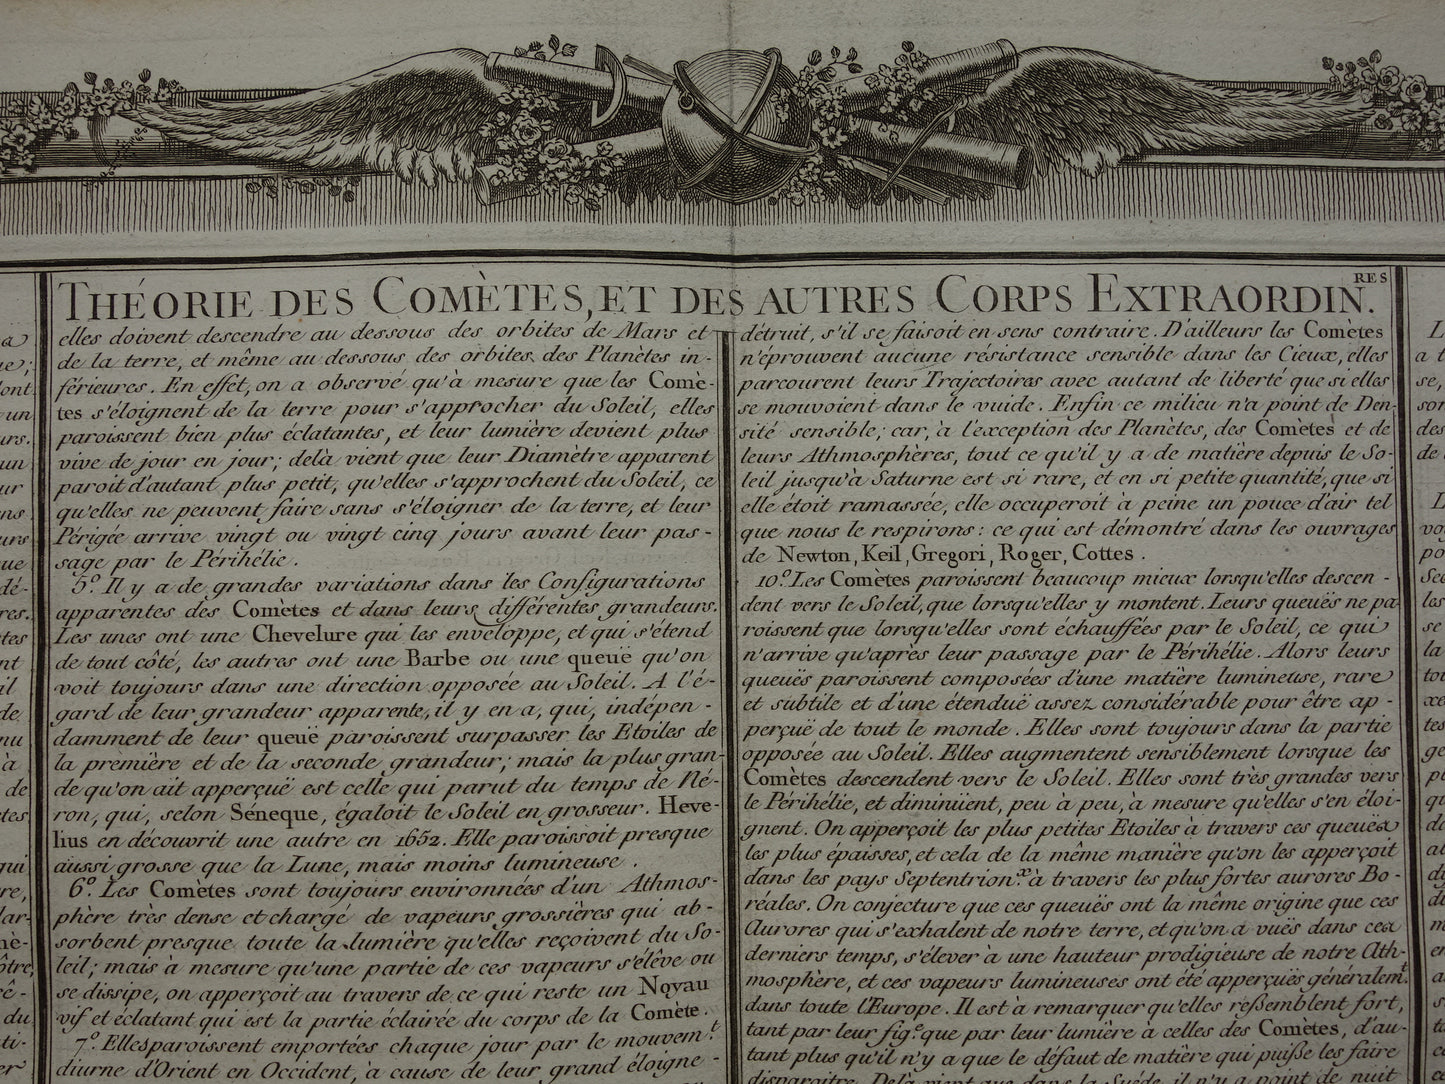 THÉORIE DES COMÈTES, ET DES AUTRES CORPS EXTRAORDIN.RES
elles doivent descendre au dessous des orbites de Mars et
de la terre, et même au dessous des orbites des Planètes in-
férieures. En effèt, on a observé qu'à mesure que les Comè-
tes s'éloignent de la terre pour s'approcher du Soleil, elles
paroissent bien plus éclatantes, et leur lumière devient plus
vive de jour en jour; delà vient que leur Diamètre apparent
paroit d'autant plus petit, qu'elles s'approchent du Soleil, ce
qu'elles ne peuvent faire sans s'éloigner de la terre, et leur
Périgée arrive vingt ou vingt cinq jours avant leur pas-
sage par le Périhélie.
5.º Il y a de grandes variations dans les Configurations
apparentes des Comètes et dans leurs différentes grandeurs.
Les unes ont une Chevelure qui les enveloppe, et qui s'étend
de tout côté, les autres ont une Barbe ou une queuë qu'on
voit toujours dans une direction opposée au Soleil. A l'é-
gard de leur grandeur apparente, il y en a, qui, indépen-
damment de leur queuë paroissent surpasser les Etoiles de
la première et de la seconde grandeur; mais la plus gran-
de qu'on ait apperçuë est celle qui parut du temps de Né-
ron, qui, selon Séneque, égaloit le Soleil en grosseur. Heve-
lius en découvrit une autre en 1652. Elle paroissoit presque
aussi grosse que la Lune, mais moins lumineuse.
6.º Les Comètes sont toujours environnées d'un Athmos-
phère très dense et chargé de vapeurs grossières qui ab-
sorbent presque toute la lumière qu'elles reçoivent du So-
leil; mais à mesure qu'une partie de ces vapeurs s'élève ou
se dissipe, on apperçoit au travers de ce qui reste un Noyau
vif et éclatant qui est la partie éclairée du corps de la Comète.
7.º Elles paroissent emportées chaque jour par le mouvem.t
diurne d'Orient en Occident, à cause de leur grand éloigne-
détruit, s'il se faisoit en sens contraire. D'ailleurs les Comètes
n'éprouvent aucune résistance sensible dans les Cieux, elles
parcourent leurs Trajectoires avec autant de liberté que si elles
se mouvoient dans le vuide. Enfin ce milieu n'a point de Den-
sité sensible; car, à l'exception des Planètes, des Comètes et de
leurs Athmosphères, tout ce qu'il y a de matière depuis le So-
leil jusqu'à Saturne est si rare, et en si petite quantité, que si
elle étoit ramassée, elle occuperoit à peine un pouce d'air tel
que nous le respirons: ce qui est démontré dans les ouvrages
de Newton, Keil, Gregori, Roger, Cottes.
10.º Les Comètes paroissent beaucoup mieux lorsqu'elles descen-
dent vers le Soleil, que lorsqu'elles y montent. Leurs queuës ne pa-
roissent que lorsqu'elles sont échauffées par le Soleil, ce qui
n'arrive qu'après leur passage par le Périhélie. Alors leurs
queuës paroissent composées d'une matière lumineuse, rare
et subtile et d'une étenduë assez considérable pour être ap-
perçuë de tout le monde. Elles sont toujours dans la partie
opposée au Soleil. Elles augmentent sensiblement lorsque les
Comètes descendent vers le Soleil. Elles sont très grandes vers
le Périhélie, et diminüent, peu à peu, à mesure qu'elles s'en éloi-
gnent. On apperçoit les plus petites Etoiles à travers ces queuës
les plus épaisses, et cela de la même manière qu'on les apperçoit
dans les pays Septentrion.x à travers les plus fortes aurores Bo-
réales. On conjecture que ces queuës ont la même origine que ces
Aurores qui s'exhalent de notre terre, et qu'on a vuës dans ces
derniers temps, s'élever à une hauteur prodigieuse de notre Ath-
mosphère, et ces vapeurs lumineuses ont été apperçuës généralem.t
dans toute l'Europe. Il est à remarquer qu'elles reßemblent fort,
tant par leur fig.e que par leur lumière à celles des Comètes, d'au-
tant plus qu'il n'y a que le défaut de matière qui puiße les faire
disparoitre. Delà vient que dans la Suéde, il n'y a point de nuit